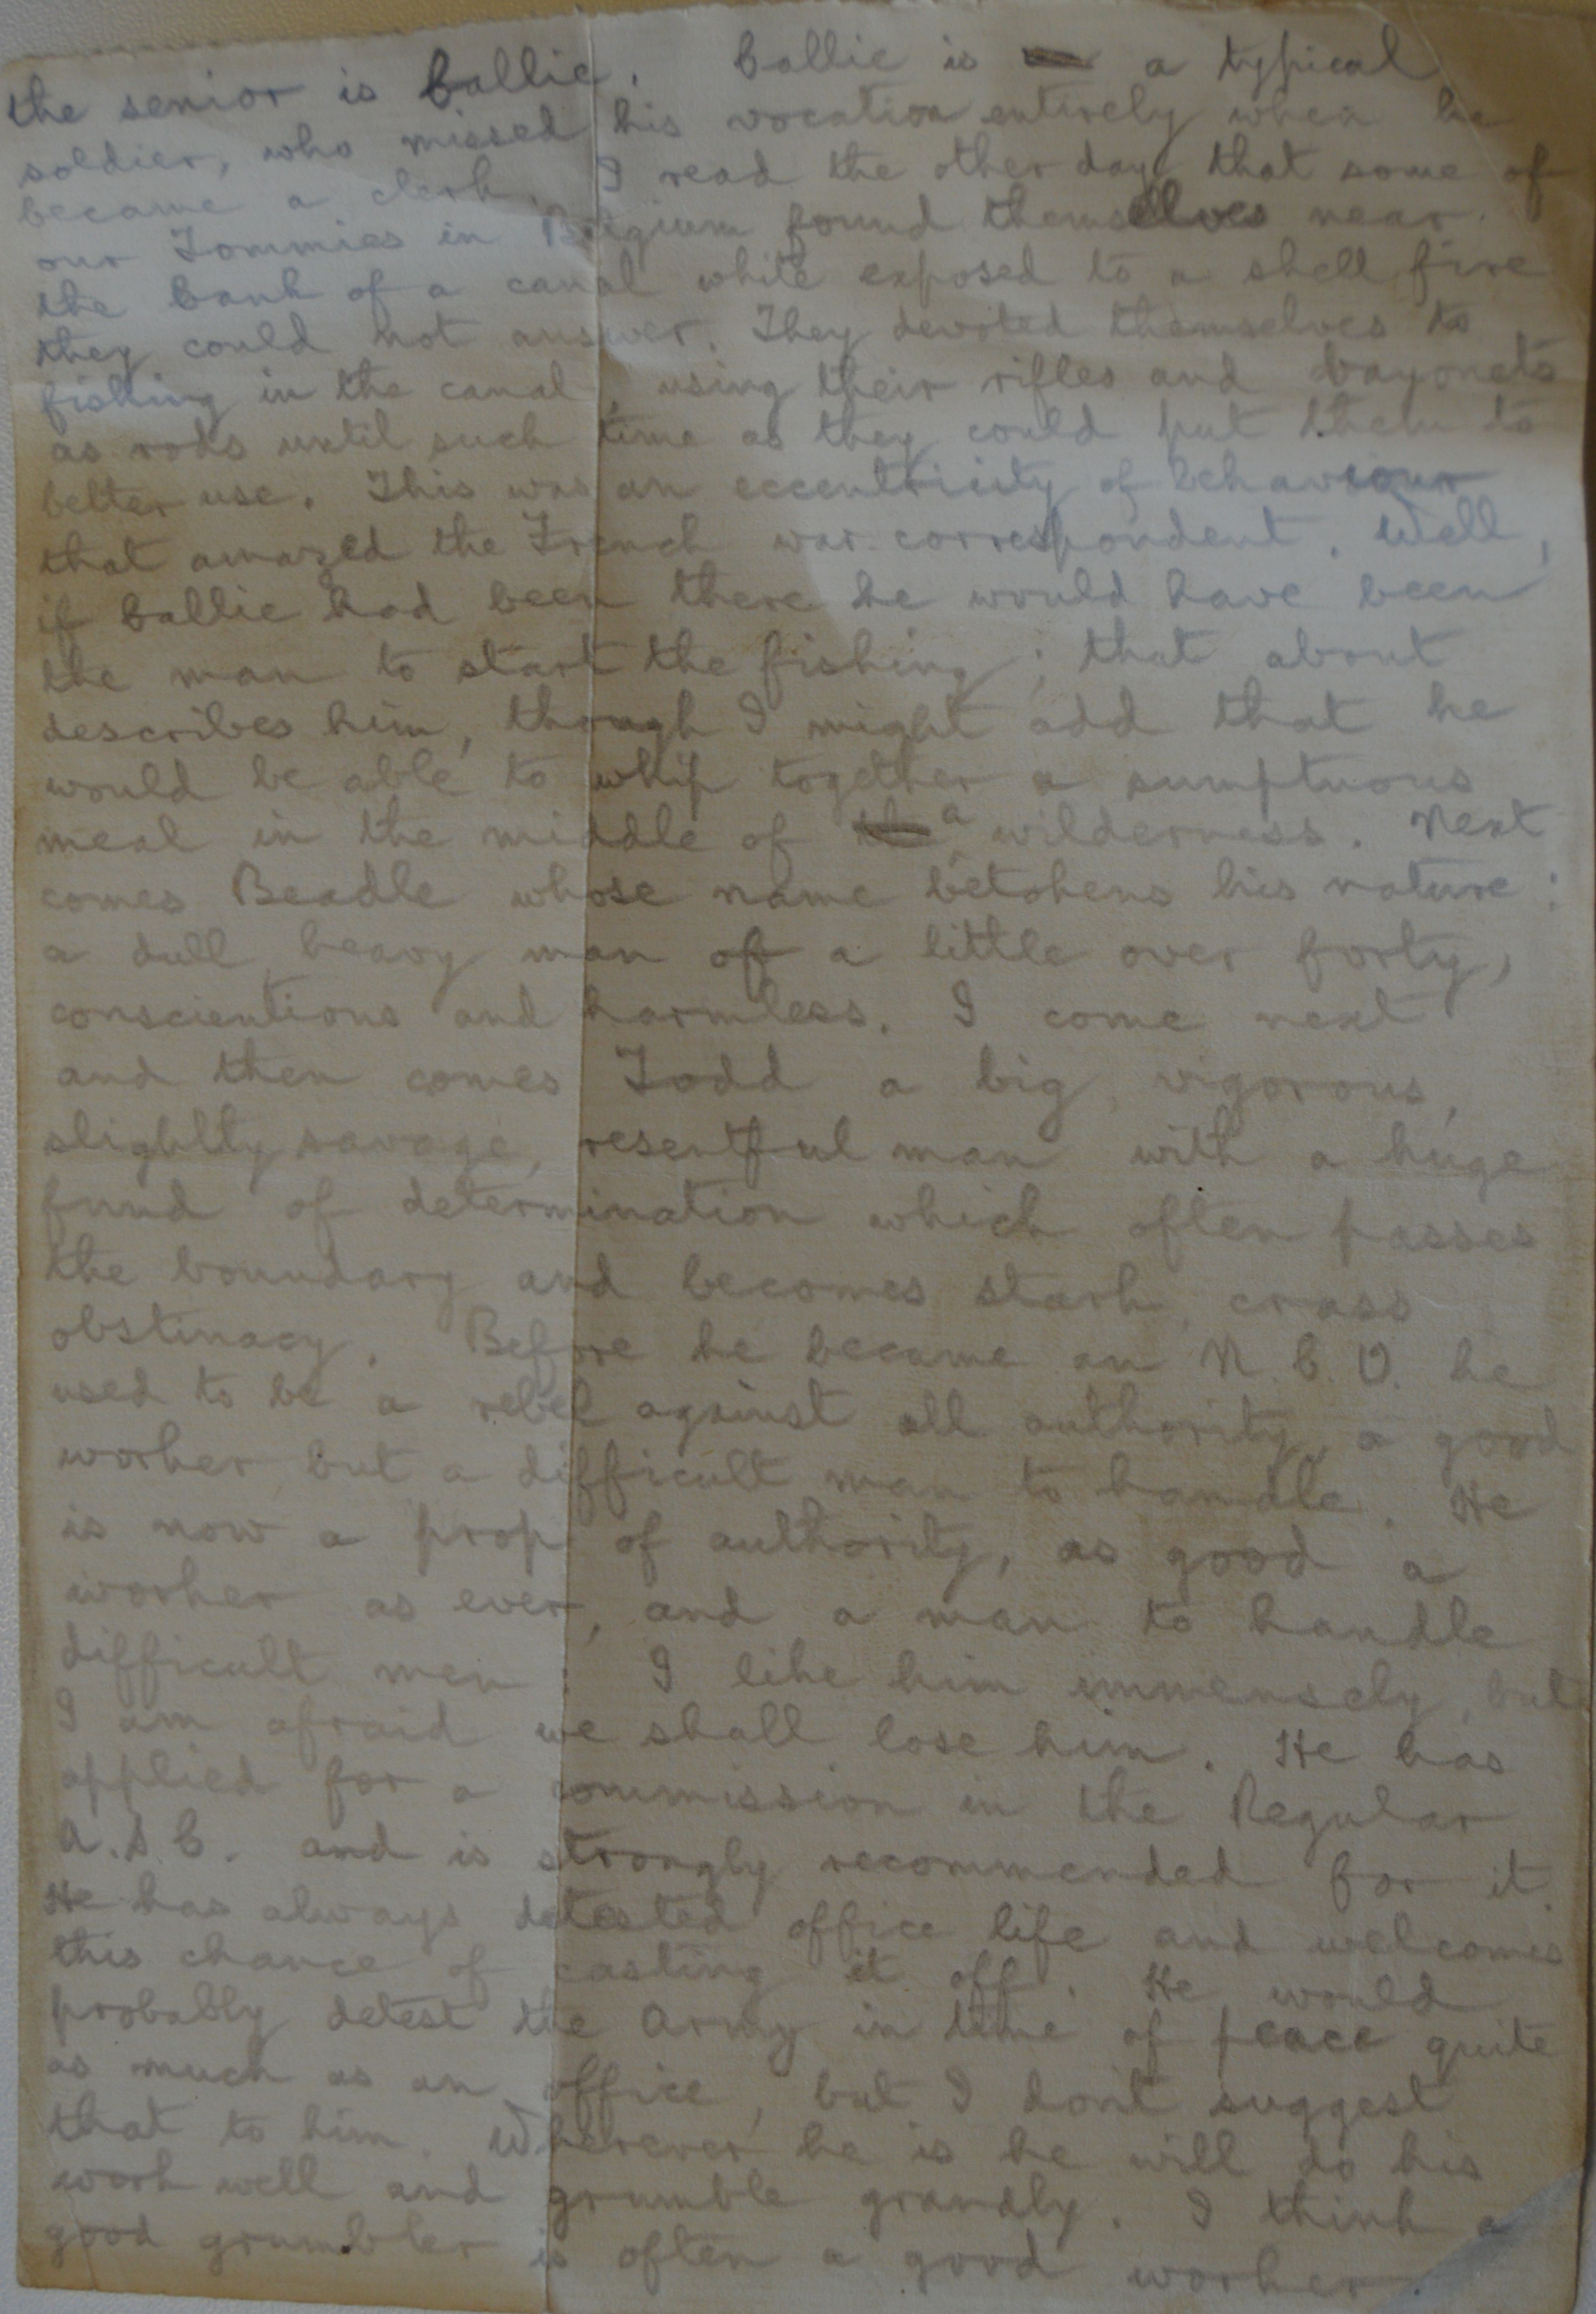 the senior is Callie. Callie is a typical
soldier, who missed his vocation entirely when he
became a clerk. I read the other day that some of
our Tommies in Belgium found themselves near
the bank of a canal while exposed to a shell fire
they could not answer. They devoted themselves to
fishing in the canal, using their rifles and bayonets
as rods until such time as they could put them to
better use. This was an eccentricity of behaviour
that amazed the French war correspondent. Well,
if Callie had been there he would have been
the man to start the fishing; that about
describes him, though I might add that he
would be able to whip together a sumptuous
meal in the middle of a wilderness. Next
comes Beadle whose name betokens his nature:
a dull heavy man of a little over forty,
conscientious and harmless. I come next
and then comes Todd a big, vigorous,
slightly savage, resentful man with a huge
fund of determination which often passes
the boundary and becomes stark, crass
obstinacy. Before he became an N.C.O. he
used to be a rebel against all authority, a good
worker but a difficult man to handle. He
is now a prop of authority, as good a
worker as ever, and a man to handle
difficult men: I like him immensely, but
I am afraid we shall lose him. He has
applied for a commission in the Regular
A.S.C. and is strongly recommended for it.
He has always detested office life and welcomes
this chance of casting it off. He would
probably detest the Army in time of peace quite
as much as an office, but I don't suggest
that to him. Wherever he is he will do his
work well and grumble grandly. I think a
good grumbler is often a good worker.